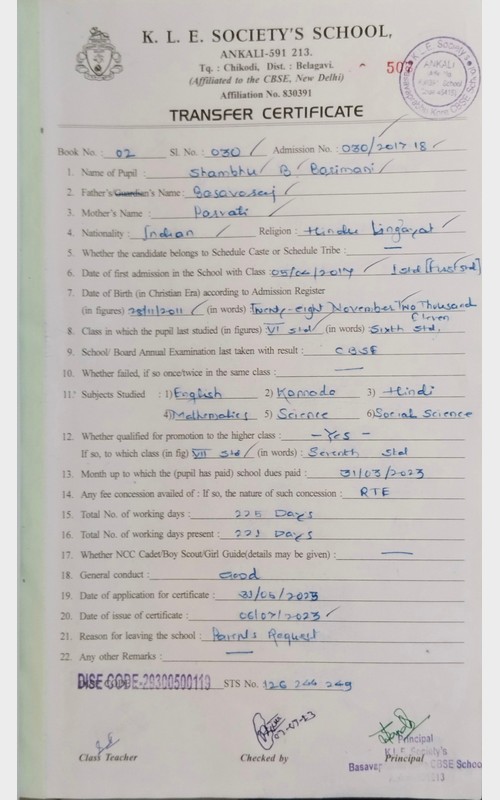 K. L. E. SOCIETY'S SCHOOL,
ANKALI-591 213.
Tq. : Chikodi, Dist. : Belagavi.
(Affiliated to the CBSE, New Delhi)
Affiliation No. 830391
TRANSFER CERTIFICATE
Book No. : 02 Sl. No. : 030 Admission No. : 030/2017 18
1. Name of Pupil : Shambhu B Barimani
2. Father's/Guardian's Name : Basavaraj
3. Mother's Name : Parvati
4. Nationality : Indian Religion : Hindu Lingayat
5. Whether the candidate belongs to Schedule Caste or Schedule Tribe : —
6. Date of first admission in the School with Class : 05/04/2017 1 std [First std]
7. Date of Birth (in Christian Era) according to Admission Register
(in figures) 28/11/2011 (in words) : Twenty-eight November Two Thousand
Eleven
8. Class in which the pupil last studied (in figures) VI std (in words) : Sixth Std.
9. School/ Board Annual Examination last taken with result : CBSE
10. Whether failed, if so once/twice in the same class : —
11. Subjects Studied : 1) English 2) Kannada 3) Hindi
4) Mathematics 5) Science 6) Social Science
12. Whether qualified for promotion to the higher class : – Yes –
If so, to which class (in fig) VII std (in words) : Seventh std
13. Month up to which the (pupil has paid) school dues paid : 31/03/2023
14. Any fee concession availed of : If so, the nature of such concession : RTE
15. Total No. of working days : 225 Days
16. Total No. of working days present : 221 Days
17. Whether NCC Cadet/Boy Scout/Girl Guide(details may be given) : —
18. General conduct : Good
19. Date of application for certificate : 31/05/2023
20. Date of issue of certificate : 06/07/2023
21. Reason for leaving the school : Parents Request
22. Any other Remarks : —
DISE CODE-29300500119 STS No. 126 244 249
07-07-23
Class Teacher Checked by Principal
Principal
K.L.E. Society's
CBSE School